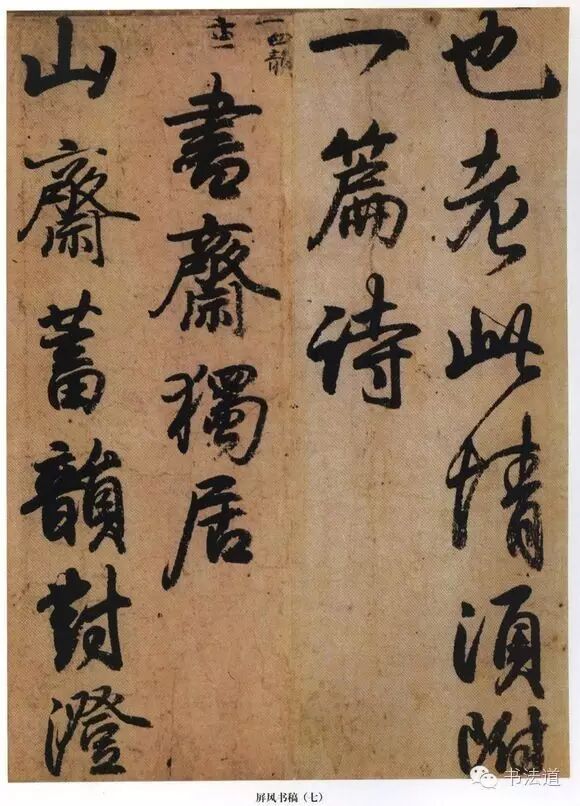 也老此情須附
一篇诗
書齋獨居
山齋蓄韻對澄
屏风书稿（七）
书法道